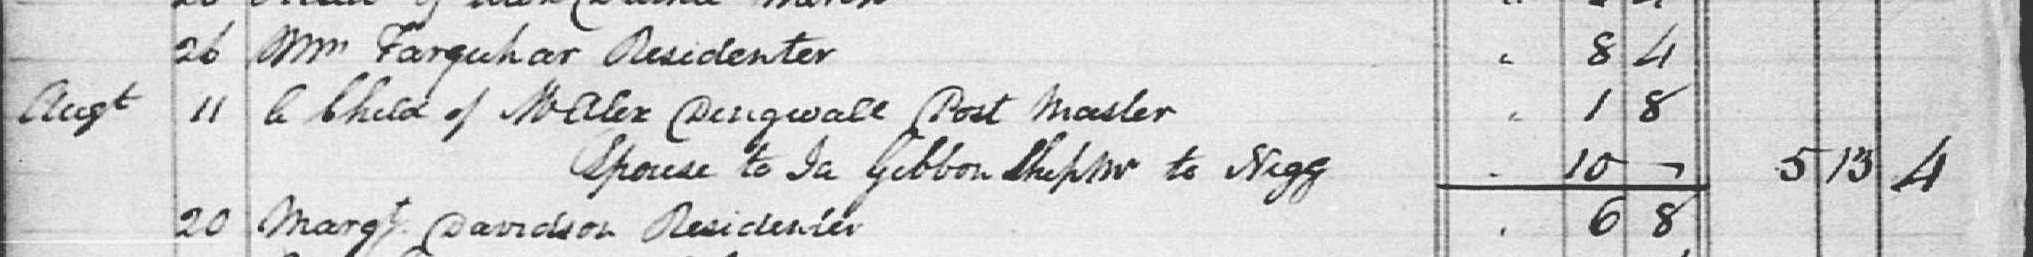 26 Mrs Farquhar Residenter " 8 4
Augt 11 A Child of Mr Alex Dingwall Post Master " 1 8
Spouse to Ja Gibbon Ship Mr to Nigg " 10 - 5 13 4
20 Margt Davidson Residenter " 6 8